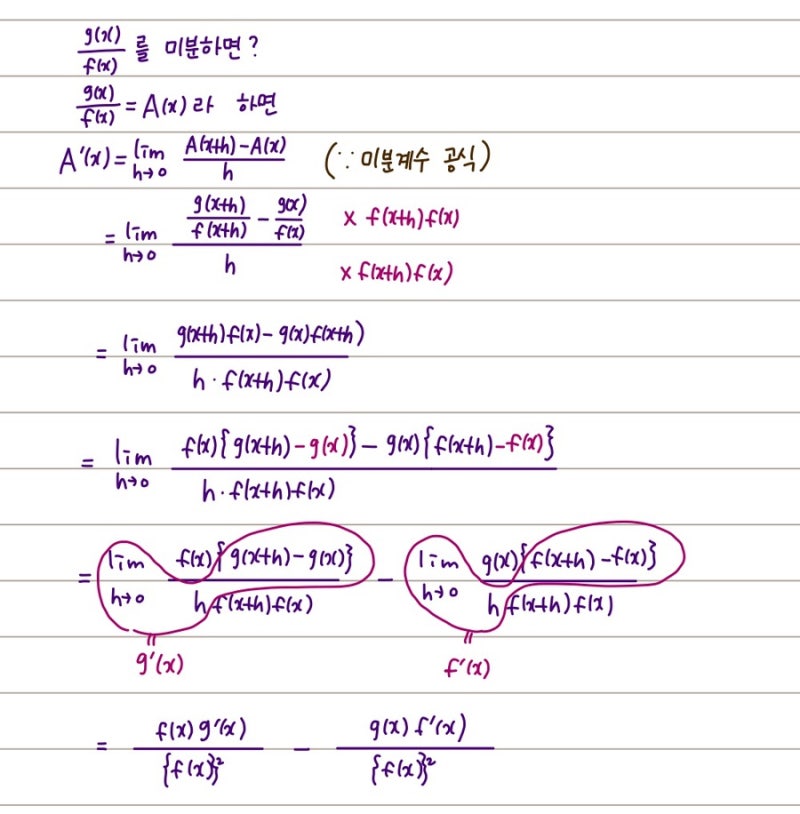 g(x)/f(x) 를 미분하면?
g(x)/f(x) = A(x)라 하면
A'(x) = lim h→0 (A(x+h)-A(x))/h (∵ 미분계수 공식)
= lim h→0 (g(x+h)/f(x+h) - g(x)/f(x))/h × f(x+h)f(x) × f(x+h)f(x)
= lim h→0 (g(x+h)f(x) - g(x)f(x+h))/(h·f(x+h)f(x))
= lim h→0 (f(x){g(x+h)-g(x)} - g(x){f(x+h)-f(x)})/(h·f(x+h)f(x))
= lim h→0 (f(x){g(x+h)-g(x)})/(h f(x+h)f(x)) - lim h→0 (g(x){f(x+h)-f(x)})/(h f(x+h)f(x))
= g'(x) = f'(x)
= f(x)g'(x)/{f(x)}² - g(x)f'(x)/{f(x)}²